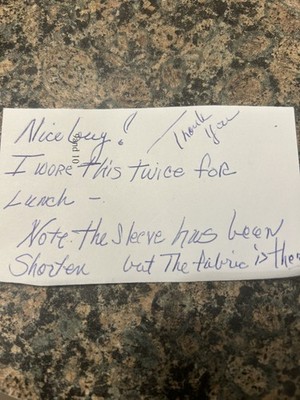 Nice buy! Thank you
I wore this twice for
Lunch –
Note the sleeve has been
Shorten but The fabric is ther